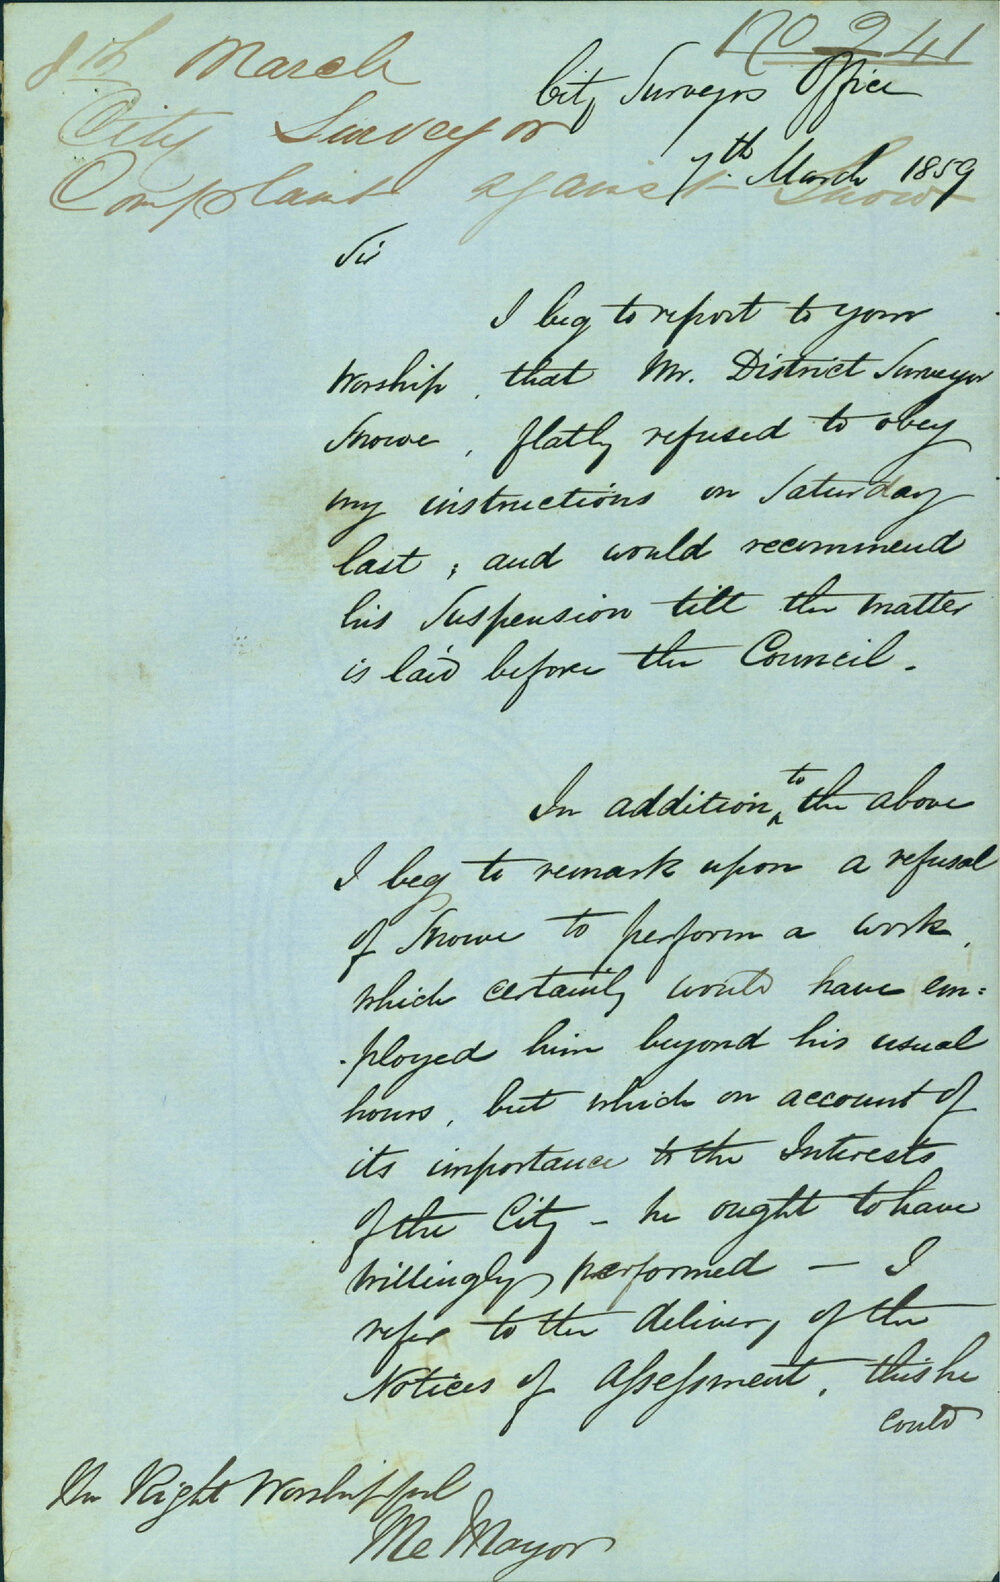 No 241
8th March
City Surveyor
Complaint against Snowe
City Surveyors Office
7th March 1859
Sir
I beg to report to your
Worship, that Mr. District Surveyor
Snowe, flatly refused to obey
my instructions on Saturday
last; and would recommend
his Suspension till the matter
is laid before the Council.
In addition to the above
I beg to remark upon a refusal
of Snowe to perform a work,
which certainly would have em=
ployed him beyond his usual
hours, but which on account of
its importance to the Interests
of the City – he ought to have
willingly performed — I
refer to the delivery of the
Notices of Assessment, this he
could
The Right Worshipful
The Mayor